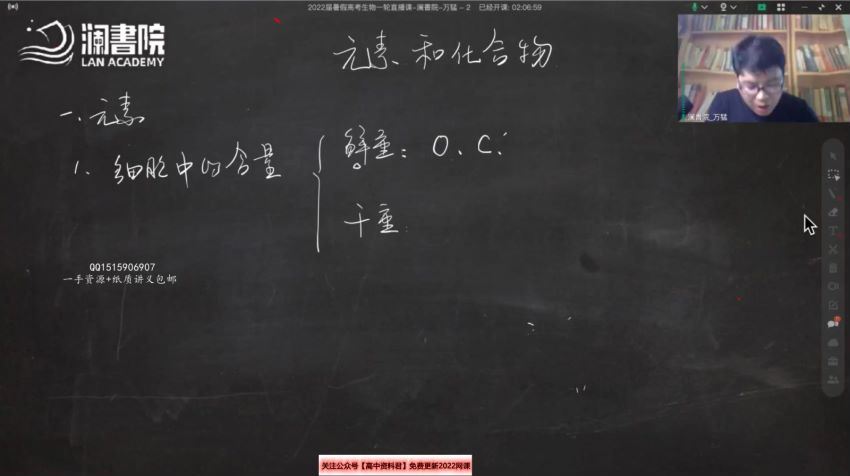 2022届暑假高考生物一轮直播课-澜書院-万猛 - 2 已经开课: 02:06:59
澜書院
LAN ACADEMY
元素和化合物
澜書院_万猛
一、元素
1、细胞中的含量
鲜重：O、C
干重
QQ1515906907
一手资源+纸质讲义包邮
关注公众号【高中资料君】免费更新2022网课